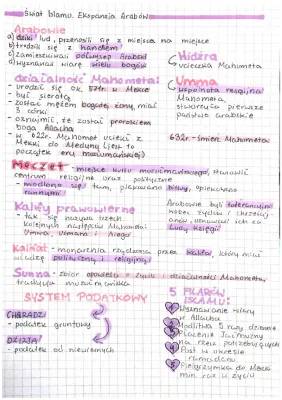 Świat Islamu. Ekspansja Arabów
Arabowie
a) dziki lud, przenosili się z miejsca na miejsce
b) trudzili się z handlem
c) zamieszkiwali półwysep Arabski
d) wyznawali wiarę wielu bogów
Hidżra
ucieczka Mahometa
działalność Mahometa:
- urodził się ok. 571r. w Mekce
- był sierotą
- został mężem bogatej żony, miał
3 córki
- oznajmił, że został prorokiem
boga Allacha
- w 622r. Mahomet uciekł z
Mekki do Medyny (jest to
początek ery muzułmańskiej)
Umma
wspólnota religijna
Mahometa,
stworzyła pierwsze
państwo arabskie
632r. - śmierć Mahometa
Meczet - miejsce kultu muzułmańskiego, stanowił
centrum religijne oraz polityczne
- modlono się tam, piekarniano
rannymi
Kalify prawowierne
- tak się nazywa trzech
kolejnych następców Mahometa:
Umara, Usmana i Alego
Arabowie byli tolerancyjni
wobec żydów i chrześci-
jan, uznawali ich za
Ludy Księgi
kalifat - monarchia rządzona przez kalifa, który miał
władzę polityczną i religijną
Sunna - zbiór opowieści o życiu i działalności Mahometa,
SYSTEM PODATKOWY
CHARADŻ:
- podatek gruntowy
DŻIZJA:
- podatek od niewiernych
5 FILARÓW
ISLAMU:
1 Wyznawanie wiary
w Allacha
2 Modlitwa 5 razy dziennie
3 Płacenie jałmużny
na rzecz potrzebujących
4 Post w okresie
ramadanu
5 Pielgrzymka do Mekki
min. raz w życiu